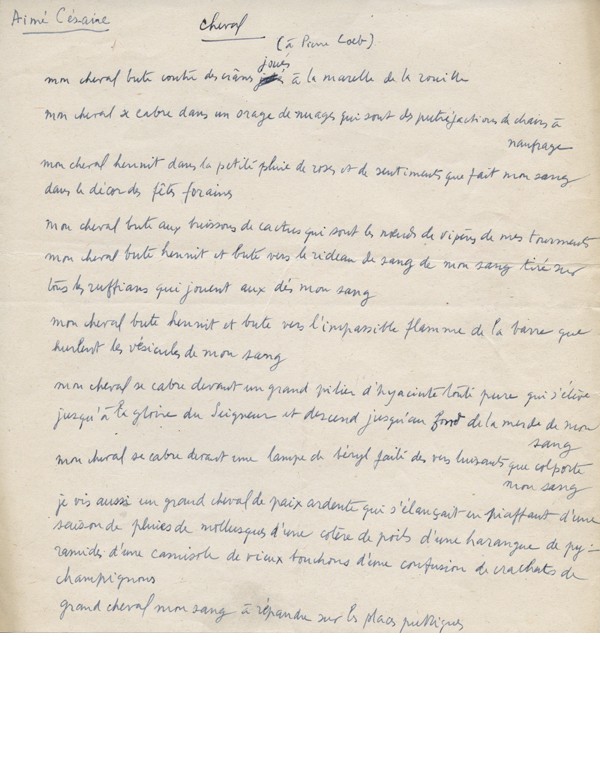 Aimé Césaire
cheval
(à Pierre Loeb)
joués
mon cheval bute contre des crânes à la marelle de la rouille
mon cheval se cabre dans un orage de nuages qui sont des putréfactions de chairs à
naufrage
mon cheval hennit dans la petite pluie de roses et de sentiments que fait mon sang
dans le décor des fêtes foraines
mon cheval bute aux buissons de cactus qui sont les nœuds de vipères de mes tourments
mon cheval bute hennit et bute vers le rideau de sang de mon sang tiré sur
tous les ruffians qui jouent aux dés mon sang
mon cheval bute hennit et bute vers l'impassible flamme de la barre que
hurlent les vésicules de mon sang
mon cheval se cabre devant un grand pilier d'hyacinte toute pure qui s'élève
jusqu'à la gloire du Seigneur et descend jusqu'au fond de la merde de mon
sang
mon cheval se cabre devant une lampe de béryl faite des vers luisants que colporte
mon sang
je vis aussi un grand cheval de paix ardente qui s'élançait en piaffant d'une
saison de pluies de mollusques d'une colère de poils d'une harangue de py-
ramides d'une camisole de vieux bouchons d'une confusion de crachats de
champignons
grand cheval mon sang à répandre sur les places publiques